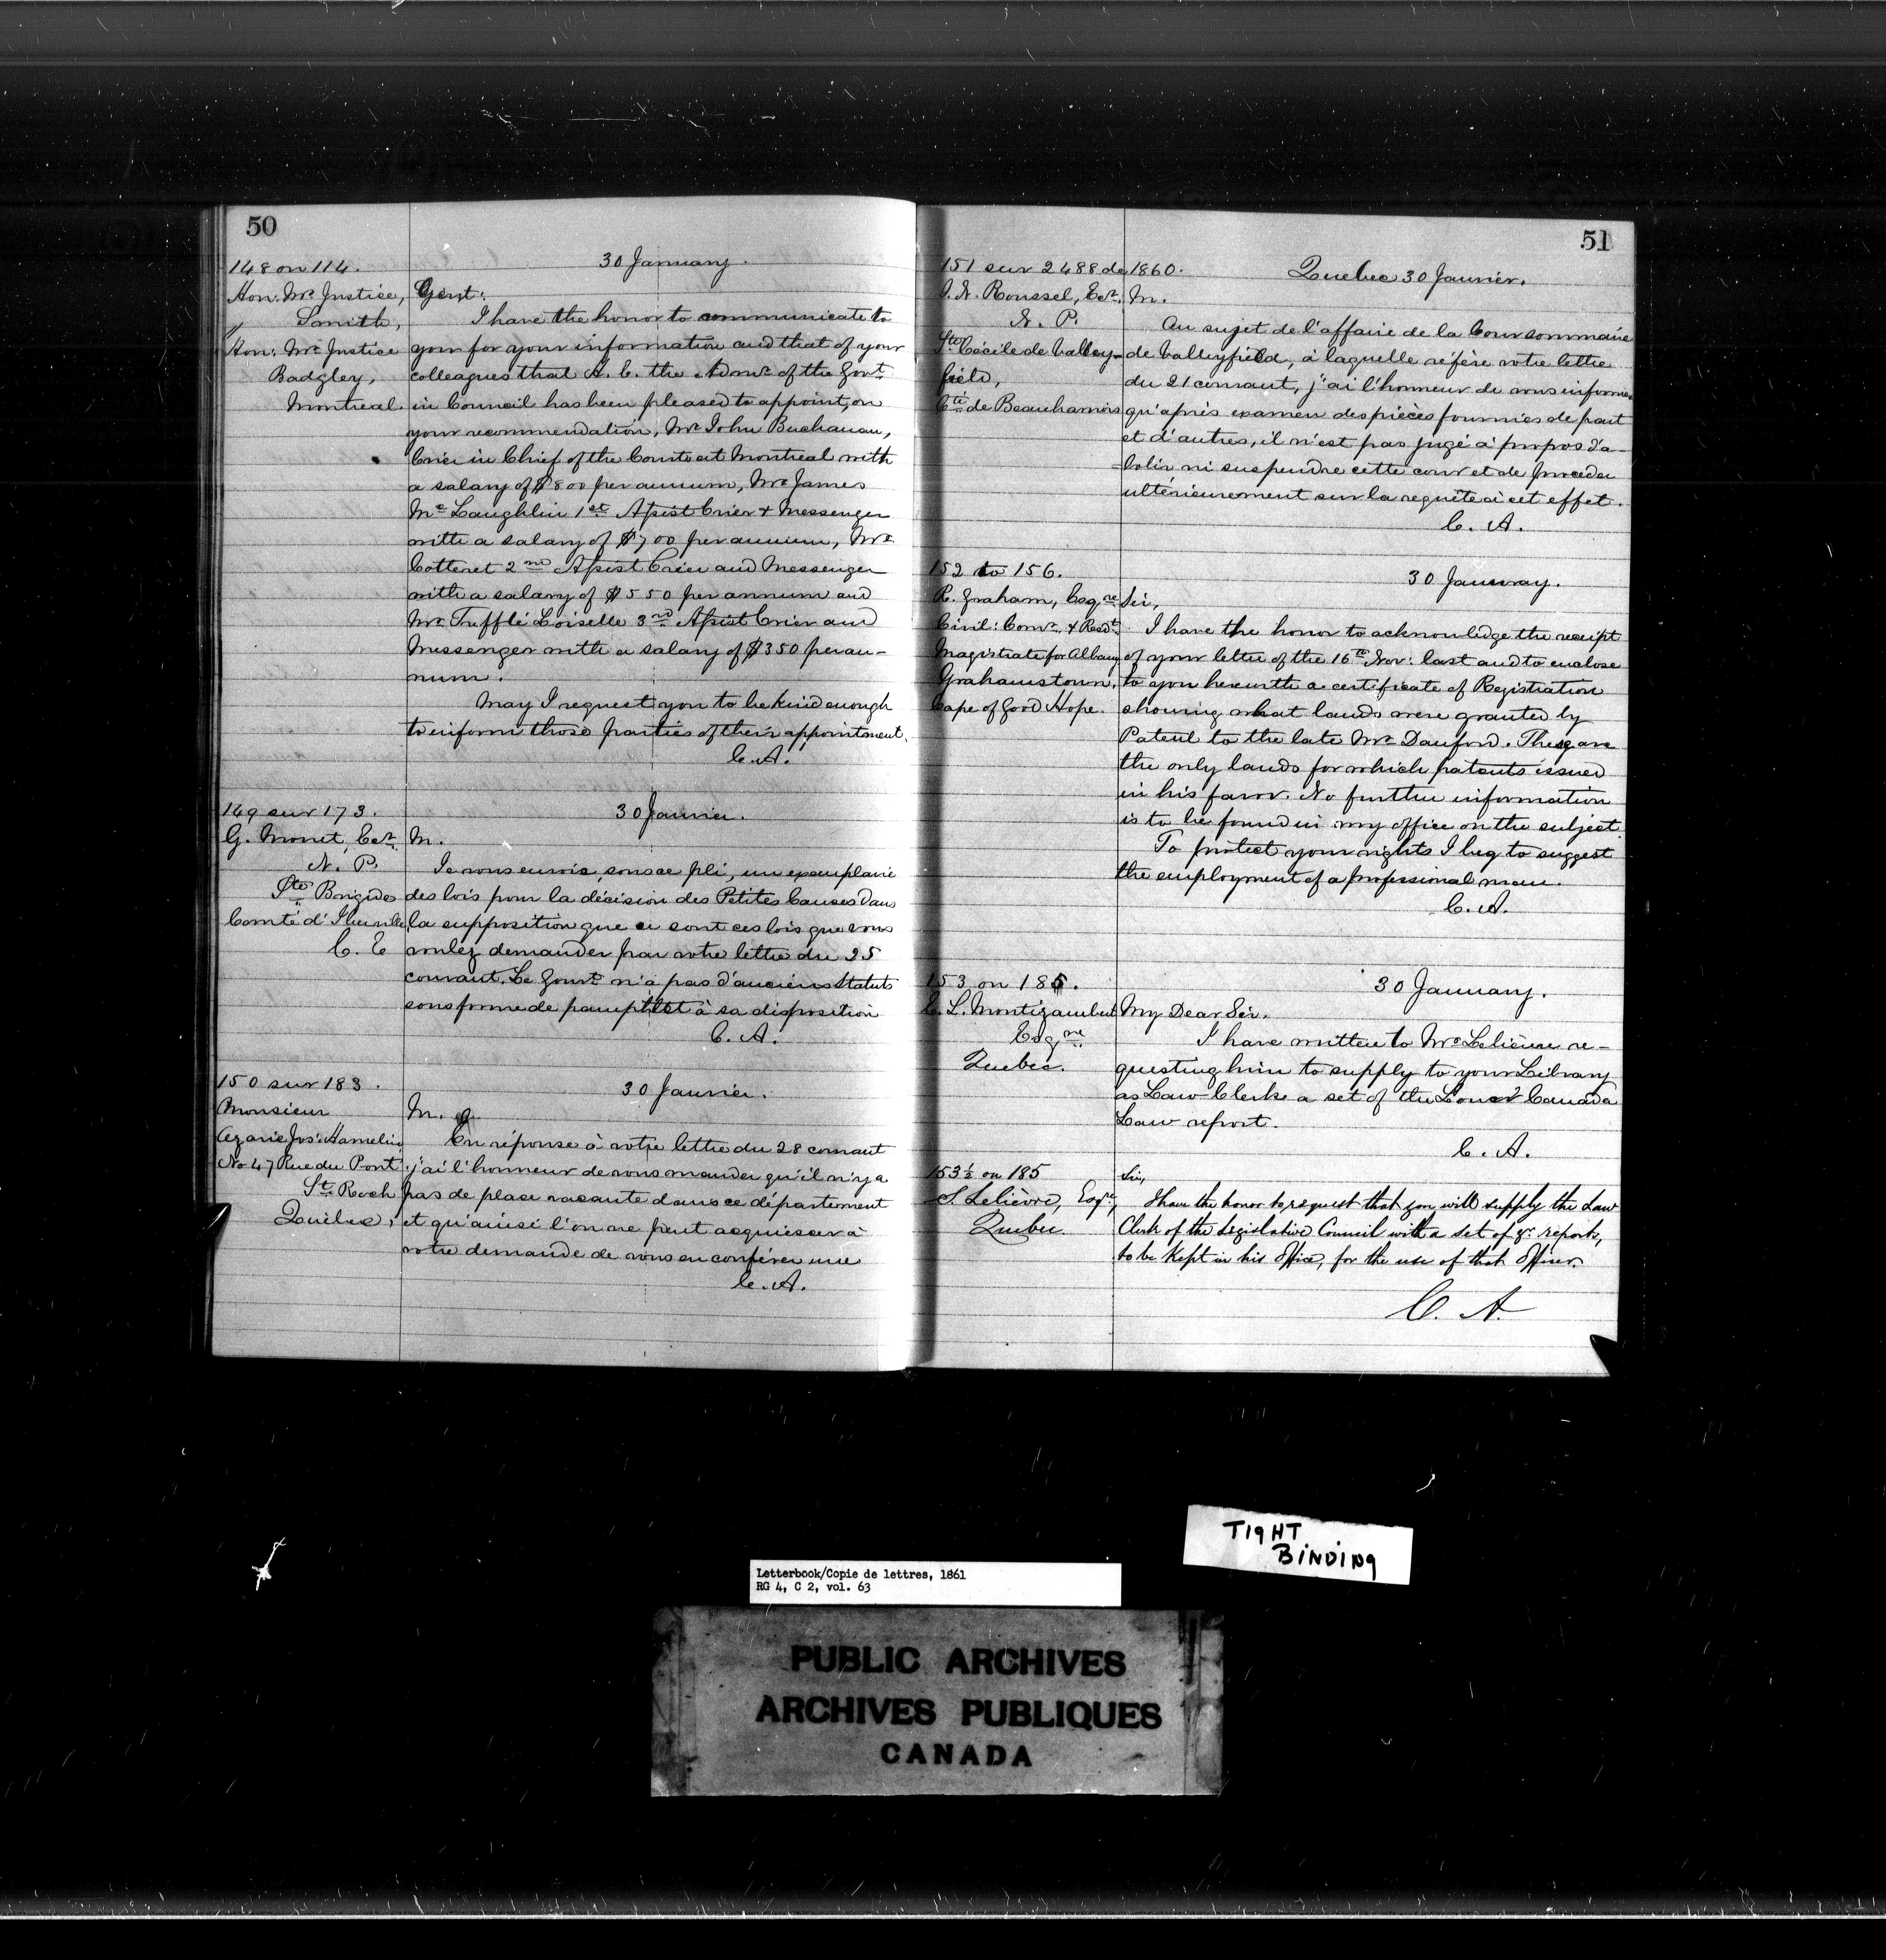 50
148 on 114.
30 January.
Hon: Mr. Justice,
Smith,
"
Hon: Mr. Justice
Badgley,
Montreal.
Gent:
I have the honor to communicate to
you for your information and that of your
colleagues that H. E. the Admr. of the Govt.
in Council has been pleased to appoint, on
your recommendation, Mr. John Buchanan,
Crier in Chief of the Courts at Montreal with
a salary of $800 per annum, Mr. James
Mc Laughlin 1st Assist Crier & Messenger
with a salary of $700 per annum, Mr.
Cotteret 2nd Assist Crier and Messenger
with a salary of $550 per annum and
Mr. Trefflé Loiselle 3rd Assist Crier and
Messenger with a salary of $350 per an-
num.
May I request you to be kind enough
to inform those parties of their appointment.
C. A.
149 sur 173.
30 Janvier.
G. Monet, Ecr.
N. P.
Ste Brigide
Comté d'Iberville
C. E
M.
Je vous envoie, sous ce pli, un exemplaire
des lois pour la décision des Petites Causes dans
la supposition que ce sont ces lois que vous
voulez demander par votre lettre du 25
courant. Le Gouvt. n'a pas d'anciens Statuts
sous forme de pamphlet à sa disposition
C. A.
150 sur 183.
30 Janvier.
Monsieur
Azarie Jos: Hamelin
No 47 Rue du Pont
St. Roch
Québec,
M.
En réponse à votre lettre du 28 courant
j'ai l'honneur de vous mander qu'il n'y a
pas de place vacante dans ce département
et qu'ainsi l'on ne peut acquiescer à
votre demande de vous en conférer une
C. A.
51
151 sur 2488 de 1860.
Quebec 30 Janvier.
N. Roussel, Ecr.
N. P.
Ste Cécile de Valley-
field,
Cté. de Beauharnois
M.
Au sujet de l'affaire de la Cour sommaire
de Valleyfield, à laquelle réfère votre lettre
du 21 courant, j'ai l'honneur de vous informer
qu'après examen des pièces fournies de part
et d'autres, il n'est pas jugé à propos d'a-
bolir ni suspendre cette cour et de procéder
ultérieurement sur la requête à cet effet.
C. A.
152 to 156.
30 January.
R. Graham, Esqre
Civil: Comr. & Resdt.
Magistrate for Albany
Grahamstown,
Cape of Good Hope.
Sir,
I have the honor to acknowledge the receipt
of your letter of the 16th Nov: last and to enclose
to you herewith a certificate of Registration
showing what lands were granted by
Patent to the late Mr. Danford. They are
the only lands for which patents issued
in his favor. No further information
is to be found in my office on the subject.
To protect your rights I beg to suggest
the employment of a professional man.
C. A.
153 on 185.
30 January.
E. L. Montizambert
Esqre
Quebec.
My Dear Sir.
I have written to Mr. Lelièvre re-
questing him to supply to your Library
as Law Clerk a set of the Lower Canada
Law report.
C. A.
153½ on 185
S. Lelièvre, Esqre,
Quebec.
Sir,
I have the honor to request that you will supply the Law
Clerk of the Legislative Council with a set of yr. reports,
to be kept in his Office, for the use of that Officer.
C. A.
TIGHT
BINDING
Letterbook/Copie de lettres, 1861
RG 4, C 2, vol. 63
PUBLIC ARCHIVES
ARCHIVES PUBLIQUES
CANADA